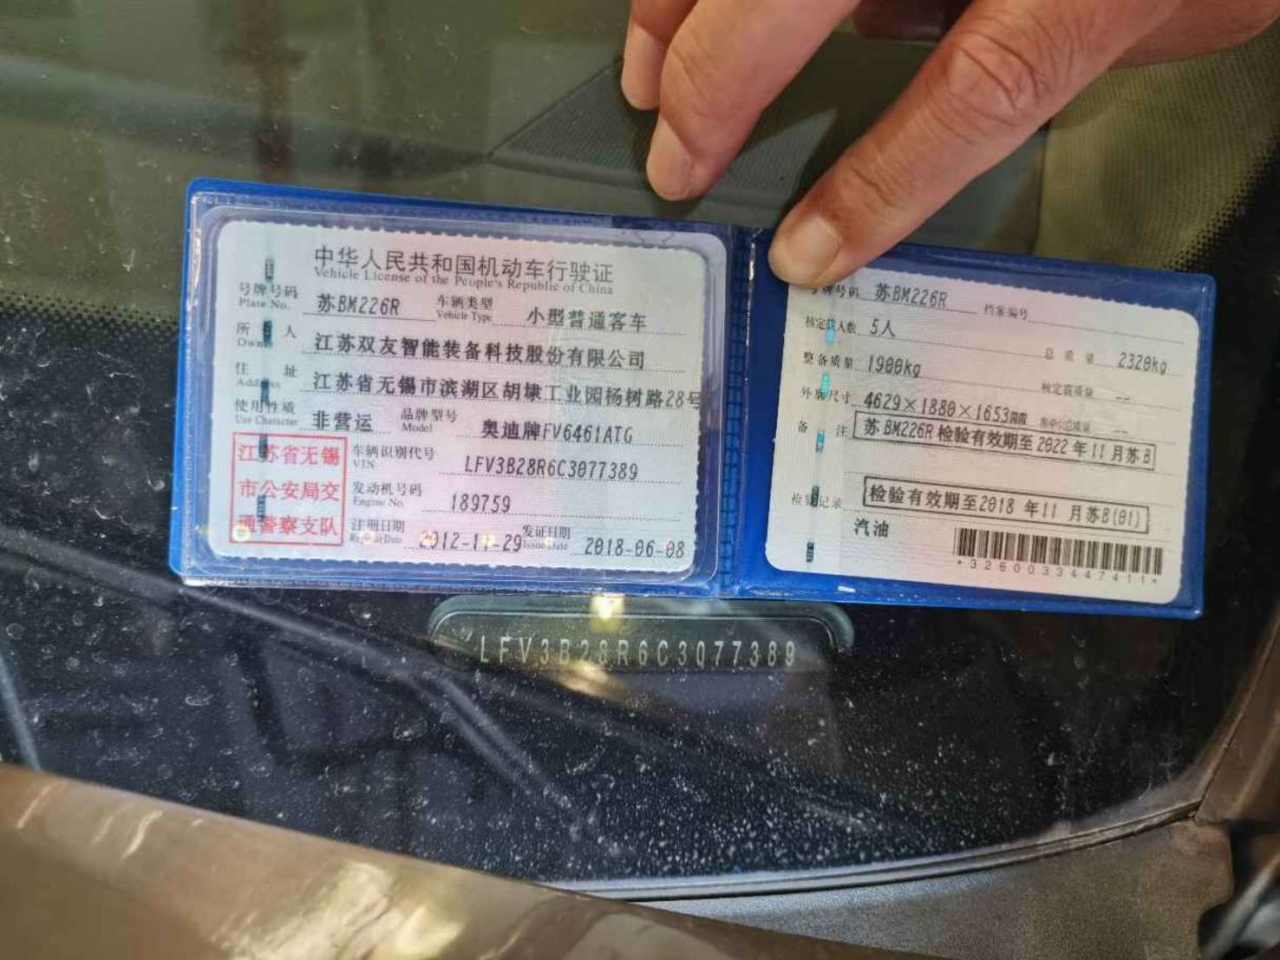 中华人民共和国机动车行驶证
Vehicle License of the People's Republic of China
号牌号码 苏BM226R 车辆类型 小型普通客车
Plate No. Vehicle Type
所 人 江苏双友智能装备科技股份有限公司
住 址 江苏省无锡市滨湖区胡埭工业园杨树路28号
Address
使用性质 非营运 品牌型号 奥迪牌FV6461ATG
Use Character Model
江苏省无锡
市公安局交
通警察支队
车辆识别代号 LFV3B28R6C3077389
VIN
发动机号码 189759
Engine No.
注册日期 2012-11-29 发证日期 2018-06-08
Register Date Issue Date
号牌号码 苏BM226R 档案编号
核定载人数 5人 总质量 2320kg
整备质量 1900kg 核定载质量 --
外廓尺寸 4629×1880×1653 --
备 注 苏BM226R检验有效期至2022年11月苏B
检验记录 检验有效期至2018年11月苏B(01)
汽油
*3260033447411*
LFV3B28R6C3077389